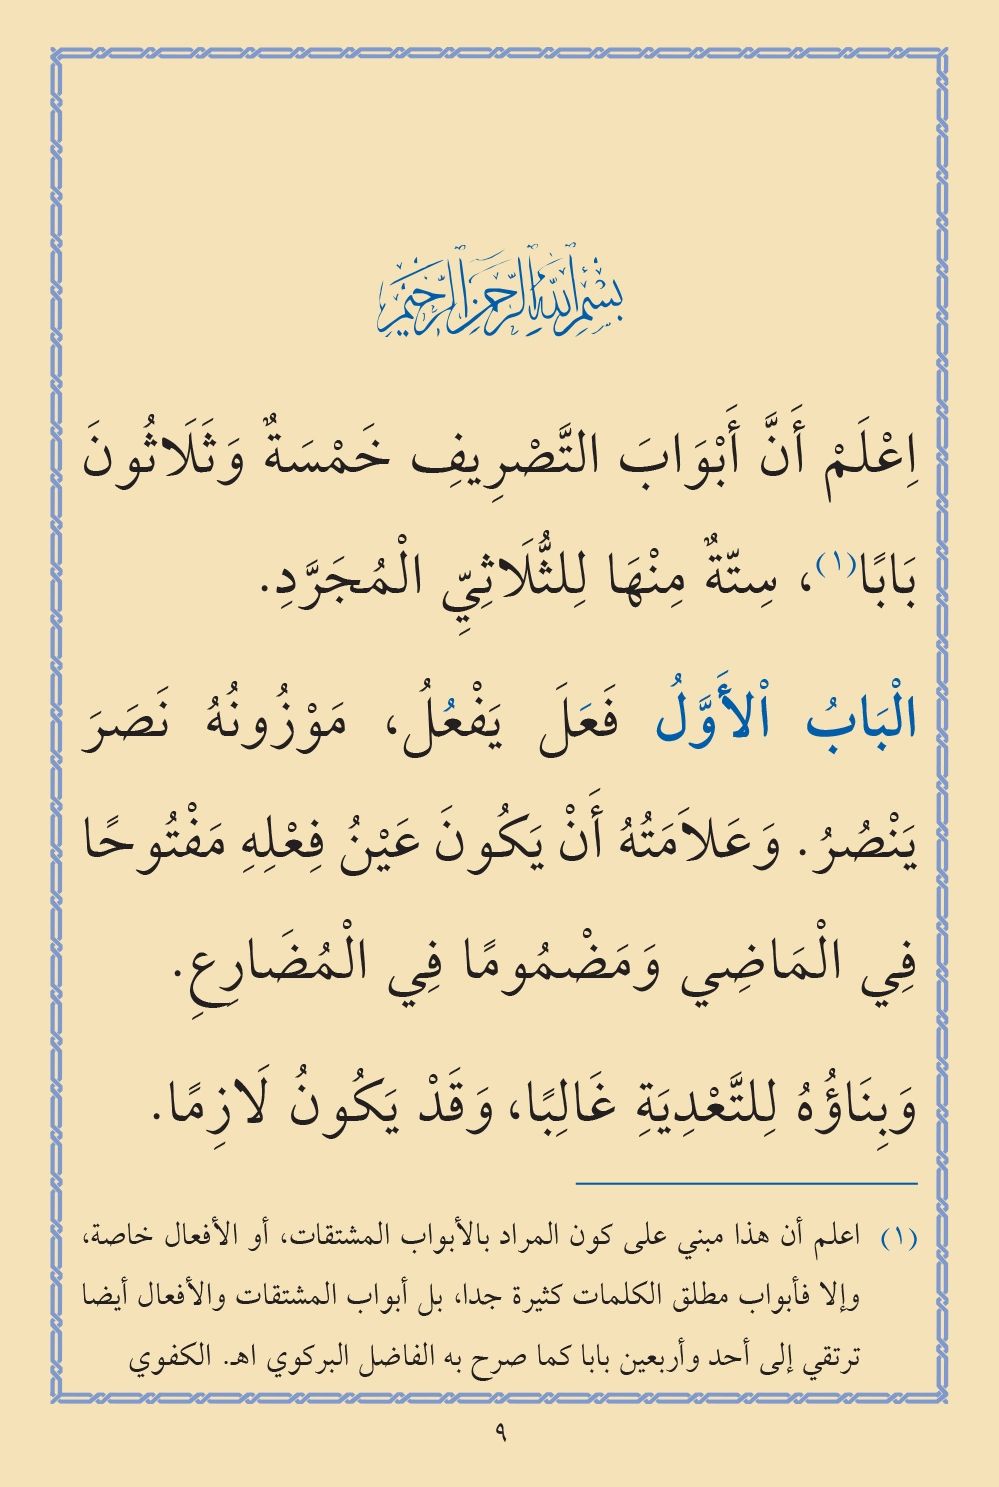 بِسْمِ اللَّهِ الرَّحْمَنِ الرَّحِيمِ
اِعْلَمْ أَنَّ أَبْوَابَ التَّصْرِيفِ خَمْسَةٌ وَثَلَاثُونَ
بَابًا(١)، سِتّةٌ مِنْهَا لِلثُّلَاثِيِّ الْمُجَرَّدِ.
الْبَابُ اْلأَوَّلُ فَعَلَ يَفْعُلُ، مَوْزُونُهُ نَصَرَ
يَنْصُرُ. وَعَلاَمَتُهُ أَنْ يَكُونَ عَيْنُ فِعْلِهِ مَفْتُوحًا
فِي الْمَاضِي وَمَضْمُومًا فِي الْمُضَارِعِ.
وَبِنَاؤُهُ لِلتَّعْدِيَةِ غَالِبًا، وَقَدْ يَكُونُ لَازِمًا.
(١) اعلم أن هذا مبني على كون المراد بالأبواب المشتقات، أو الأفعال خاصة،
وإلا فأبواب مطلق الكلمات كثيرة جدا، بل أبواب المشتقات والأفعال أيضا
ترتقي إلى أحد وأربعين بابا كما صرح به الفاضل البركوي اهـ. الكفوي
٩